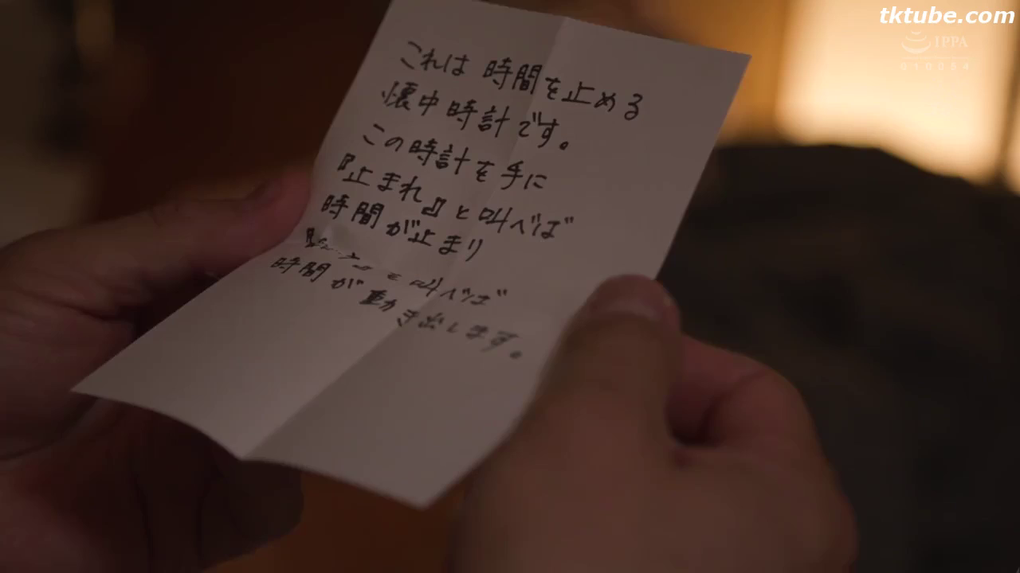 tktube.com
IPPA
これは時間を止める
懐中時計です。
この時計を手に
『止まれ』と叫べば
時間が止まり
と叫べば
時間が動き出します。